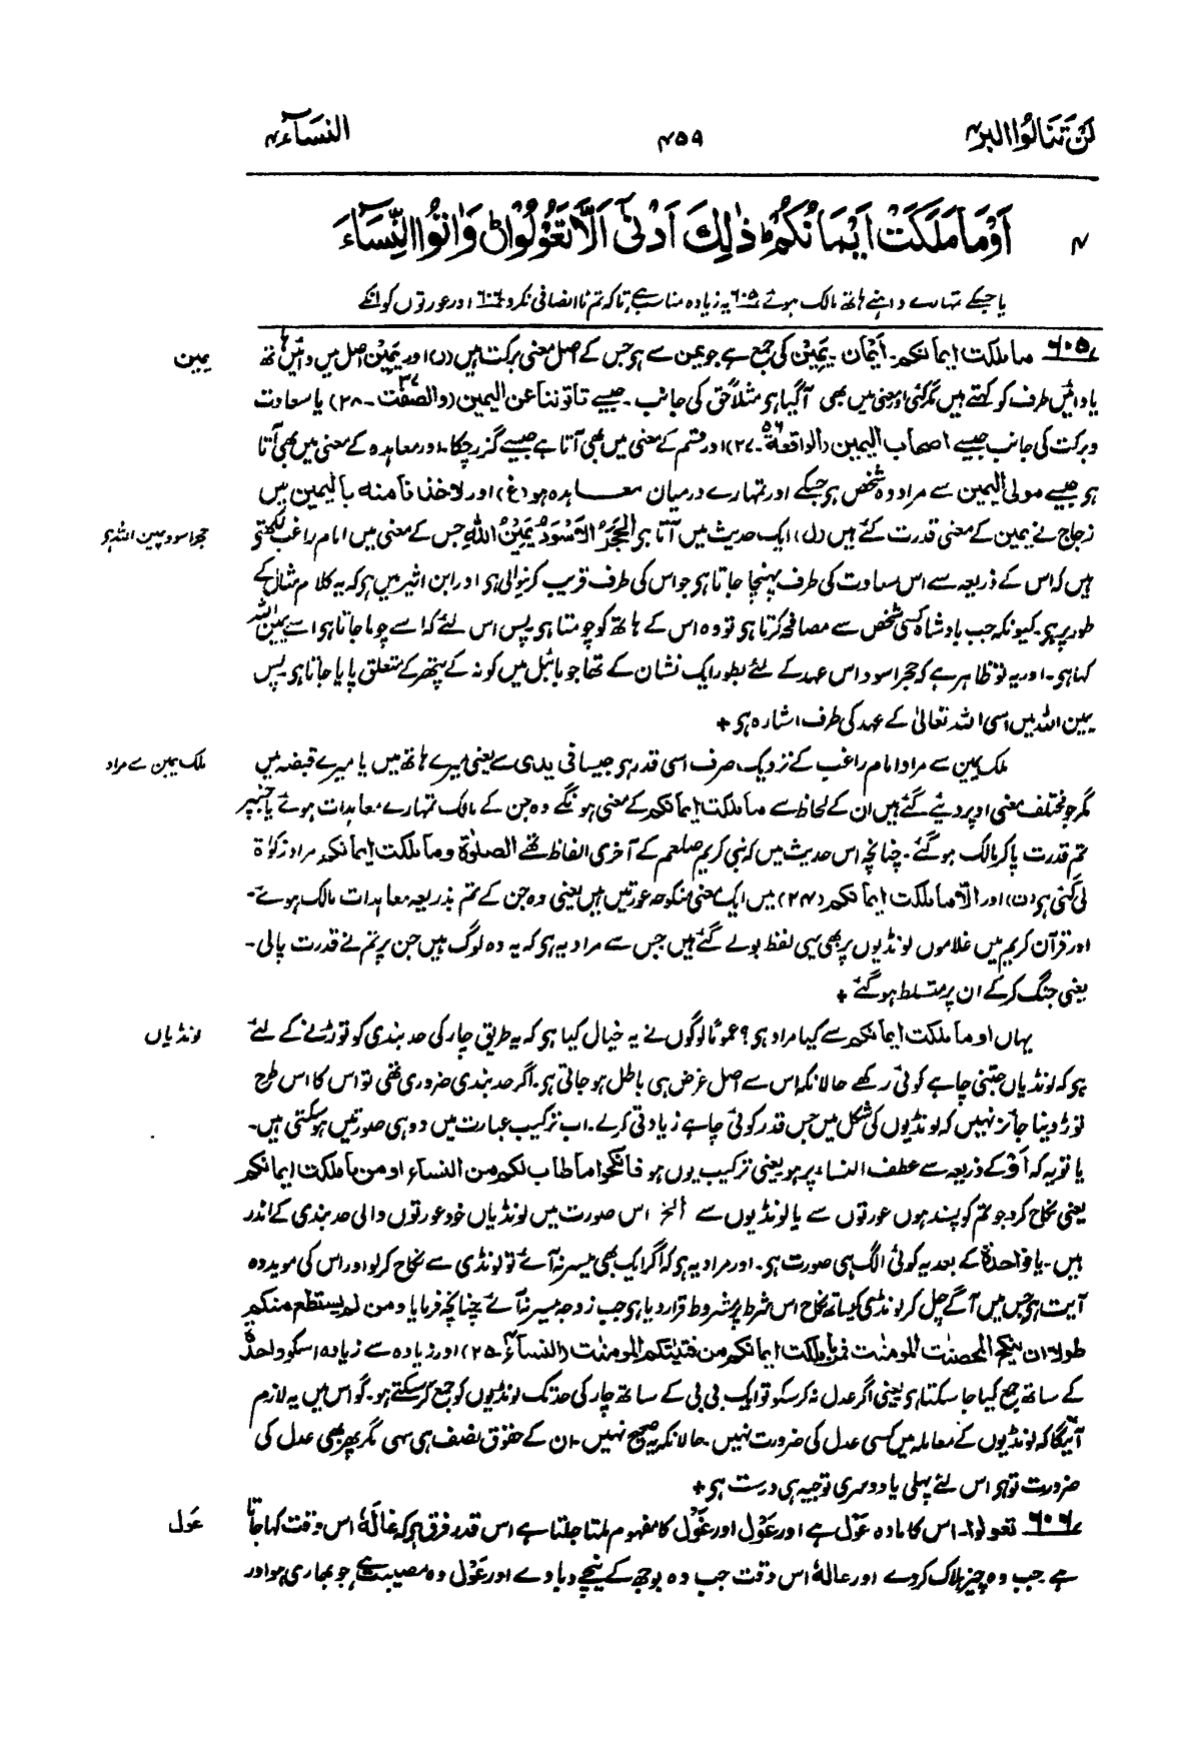 لن تنالوا البر۴ ۴۵۹ النساء۴
۴ اَوْ مَا مَلَكَتْ اَيْمَانُكُمْ ؕ ذٰلِكَ اَدْنٰۤى اَلَّا تَعُوْلُوْا ؕ وَاٰتُوا النِّسَآءَ
یا جسکے تمہارے داہنے ہاتھ مالک ہوئے ۶۰۵ یہ زیادہ مناسب ہے تاکہ تم ناانصافی نہ کرو ۶۰۶ اور عورتوں کو انکے
۶۰۵ ما ملکت ایمانکم۔ اَیْمان۔ یَمِیْن کی جمع ہے جو یمن سے ہو جس کے اصل معنی برکت ہیں (ل) اور یَمِیْن اصل میں دائیں ہاتھ
یمین
یا دائیں طرف کو کہتے ہیں مگر کئی اور معنی میں بھی آگیا ہو مثلاً حق کی جانب۔ جیسے تاتوننا عن الیمین (والصّٰفّٰت ۳۷-۲۸) یا سعادت
و برکت کی جانب جیسے اصحاب الیمین (الواقعة ۵۶-۲۷) اور قسم کے معنی میں بھی آتا ہے جیسے گزر چکا۔ اور معاہدہ کے معنی میں بھی آتا
ہو جیسے مولی الیمین سے مراد وہ شخص ہو جسکے اور تمہارے درمیان معاہدہ ہو (غ) اور لاخذنا منه بالیمین میں
زجاج نے یمین کے معنی قدرت کئے ہیں (ل) ایک حدیث میں آتا ہو الحَجَرُ الاَسْوَدُ یَمِیْنُ اللّٰہِ جس کے معنی میں امام راغب لکھتے
حجر اسود یمین اللہ ہو
ہیں کہ اس کے ذریعہ سے اس سعادت کی طرف پہنچا جاتا ہو جو اس کی طرف قریب کرنیوالی ہو اور ابن اثیر میں ہو کہ یہ کلام مثال کے
طور پر ہو۔ کیونکہ جب بادشاہ کسی شخص سے مصافحہ کرتا ہو تو وہ اس کے ہاتھ کو چومتا ہو پس اس لئے کہ اسے چوما جاتا ہو اسے یمین اللہ
کہا ہو۔ اور یہ تو ظاہر ہے کہ حجر اسود اس عہد کے لئے بطور ایک نشان کے تھا جو بائبل میں کونہ کے پتھر کے متعلق پایا جاتا ہو پس
یمین اللہ میں اسی اللہ تعالیٰ کے عہد کی طرف اشارہ ہو +
ملک یمین سے مراد امام راغب کے نزدیک صرف اسی قدر ہو جیسا فی یدی سے یعنی میرے ہاتھ میں یا میرے قبضہ میں
ملک یمین سے مراد
مگر جو مختلف معنی اوپر دیئے گئے ہیں ان کے لحاظ سے ما ملکت ایمانکم کے معنی ہونگے وہ جن کے مالک تمہارے معاہدات ہوئے یا جنپر
تم قدرت پاکر مالک ہو گئے۔ چنانچہ اس حدیث میں کہ نبی کریم صلعم کے آخری الفاظ تھے الصلوٰة وما ملکت ایمانکم مراد زکوٰة
لی گئی ہو (ن) اور الّا ما ملکت ایمانکم (۲۴) میں ایک معنی منکوحہ عورتیں ہیں یعنی وہ جن کے تم بذریعہ معاہدات مالک ہوئے۔
اور قرآن کریم میں غلاموں لونڈیوں پر بھی یہی لفظ بولے گئے ہیں جس سے مراد یہ ہو کہ یہ وہ لوگ ہیں جن پر تم نے قدرت پالی۔
یعنی جنگ کرکے ان پر متسلط ہو گئے +
یہاں او ما ملکت ایمانکم سے کیا مراد ہو؟ عموماً لوگوں نے یہ خیال کیا ہو کہ یہ طریق چار کی حد بندی کو توڑنے کے لئے
لونڈیاں
ہو کہ لونڈیاں جتنی چاہے کوئی رکھے حالانکہ اس سے اصل غرض ہی باطل ہو جاتی ہو۔ اگر حد بندی ضروری تھی تو اس کا اس طرح
توڑ دینا جائز نہیں کہ لونڈیوں کی شکل میں جس قدر کوئی چاہے زیادتی کرلے۔ اب ترکیب عبارت میں دو ہی صورتیں ہو سکتی ہیں۔
یا تو یہ کہ اَوْ کے ذریعہ سے عطف النساء پر ہو یعنی ترکیب یوں ہو فانکحوا ما طاب لکم من النساء او من ما ملکت ایمانکم
یعنی نکاح کرو جو تم کو پسند ہوں عورتوں سے یا لونڈیوں سے الخ اس صورت میں لونڈیاں خود عورتوں والی حد بندی کے اندر
ہیں۔ یا فواحدۃً کے بعد یہ کوئی الگ ہی صورت ہو۔ اور مراد یہ ہو کہ اگر ایک بھی میسر نہ آئے تو لونڈی سے نکاح کرلو اور اس کی موید وہ
آیت ہو جس میں آگے چل کر لونڈی کیساتھ نکاح اس شرط پر مشروط قرار دیا ہو جب زوجہ میسر نہ آئے چنانچہ فرمایا ومن لم یستطع منکم
طولا ان ینکح المحصنٰت المومنٰت فمن ما ملکت ایمانکم من فتیٰتکم المومنٰت (النساء۴-۲۵) اور زیادہ سے زیادہ اسکو واحدۃً
کے ساتھ جمع کیا جا سکتا ہو یعنی اگر عدل نہ کر سکو تو ایک بی بی کے ساتھ چار کی حد تک لونڈیوں کو جمع کر سکتے ہو۔ گو اس میں یہ لازم
آئیگا کہ لونڈیوں کے معاملہ میں کسی عدل کی ضرورت نہیں۔ حالانکہ یہ صحیح نہیں۔ ان کے حقوق نصف ہی سہی مگر پھر بھی عدل کی
ضرورت تو ہو اس لئے پہلی یا دوسری توجیہ ہی درست ہو +
۶۰۶ تعولوا۔ اس کا مادہ عَوْل ہے اور عَوْل اور غَوْل کا مفہوم ملتا جلتا ہے اس قدر فرق ہو کہ غَالَهٗ اس وقت کہا جاتا
عَول
ہے جب وہ چیز ہلاک کردے اور عالهٗ اس وقت جب وہ بوجھ کے نیچے دبا دے اور عَوْل وہ مصیبت ہے جو بھاری ہو اور